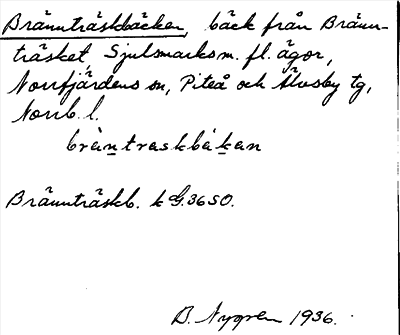 Brännträskbäcken, bäck från Bränn-
träsket, Sjulsmarks m. fl. ägor,
Norrfjärdens sn, Piteå och Älvsby tg,
Norrb. l.
bräntraskbäkan
Brännträskb. k G. 36 SO.
B. Nygren 1936.